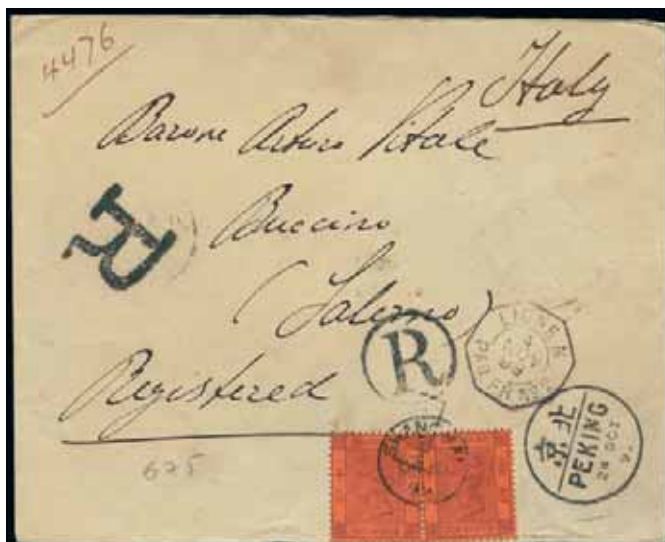 4476
Italy
Barone Arturo Vitale
Buccino
(Salerno)
R
Registered
R
LIGNE N
PAQ. FR. No
北京
PEKING
28 OCT
SHANGHAI
675